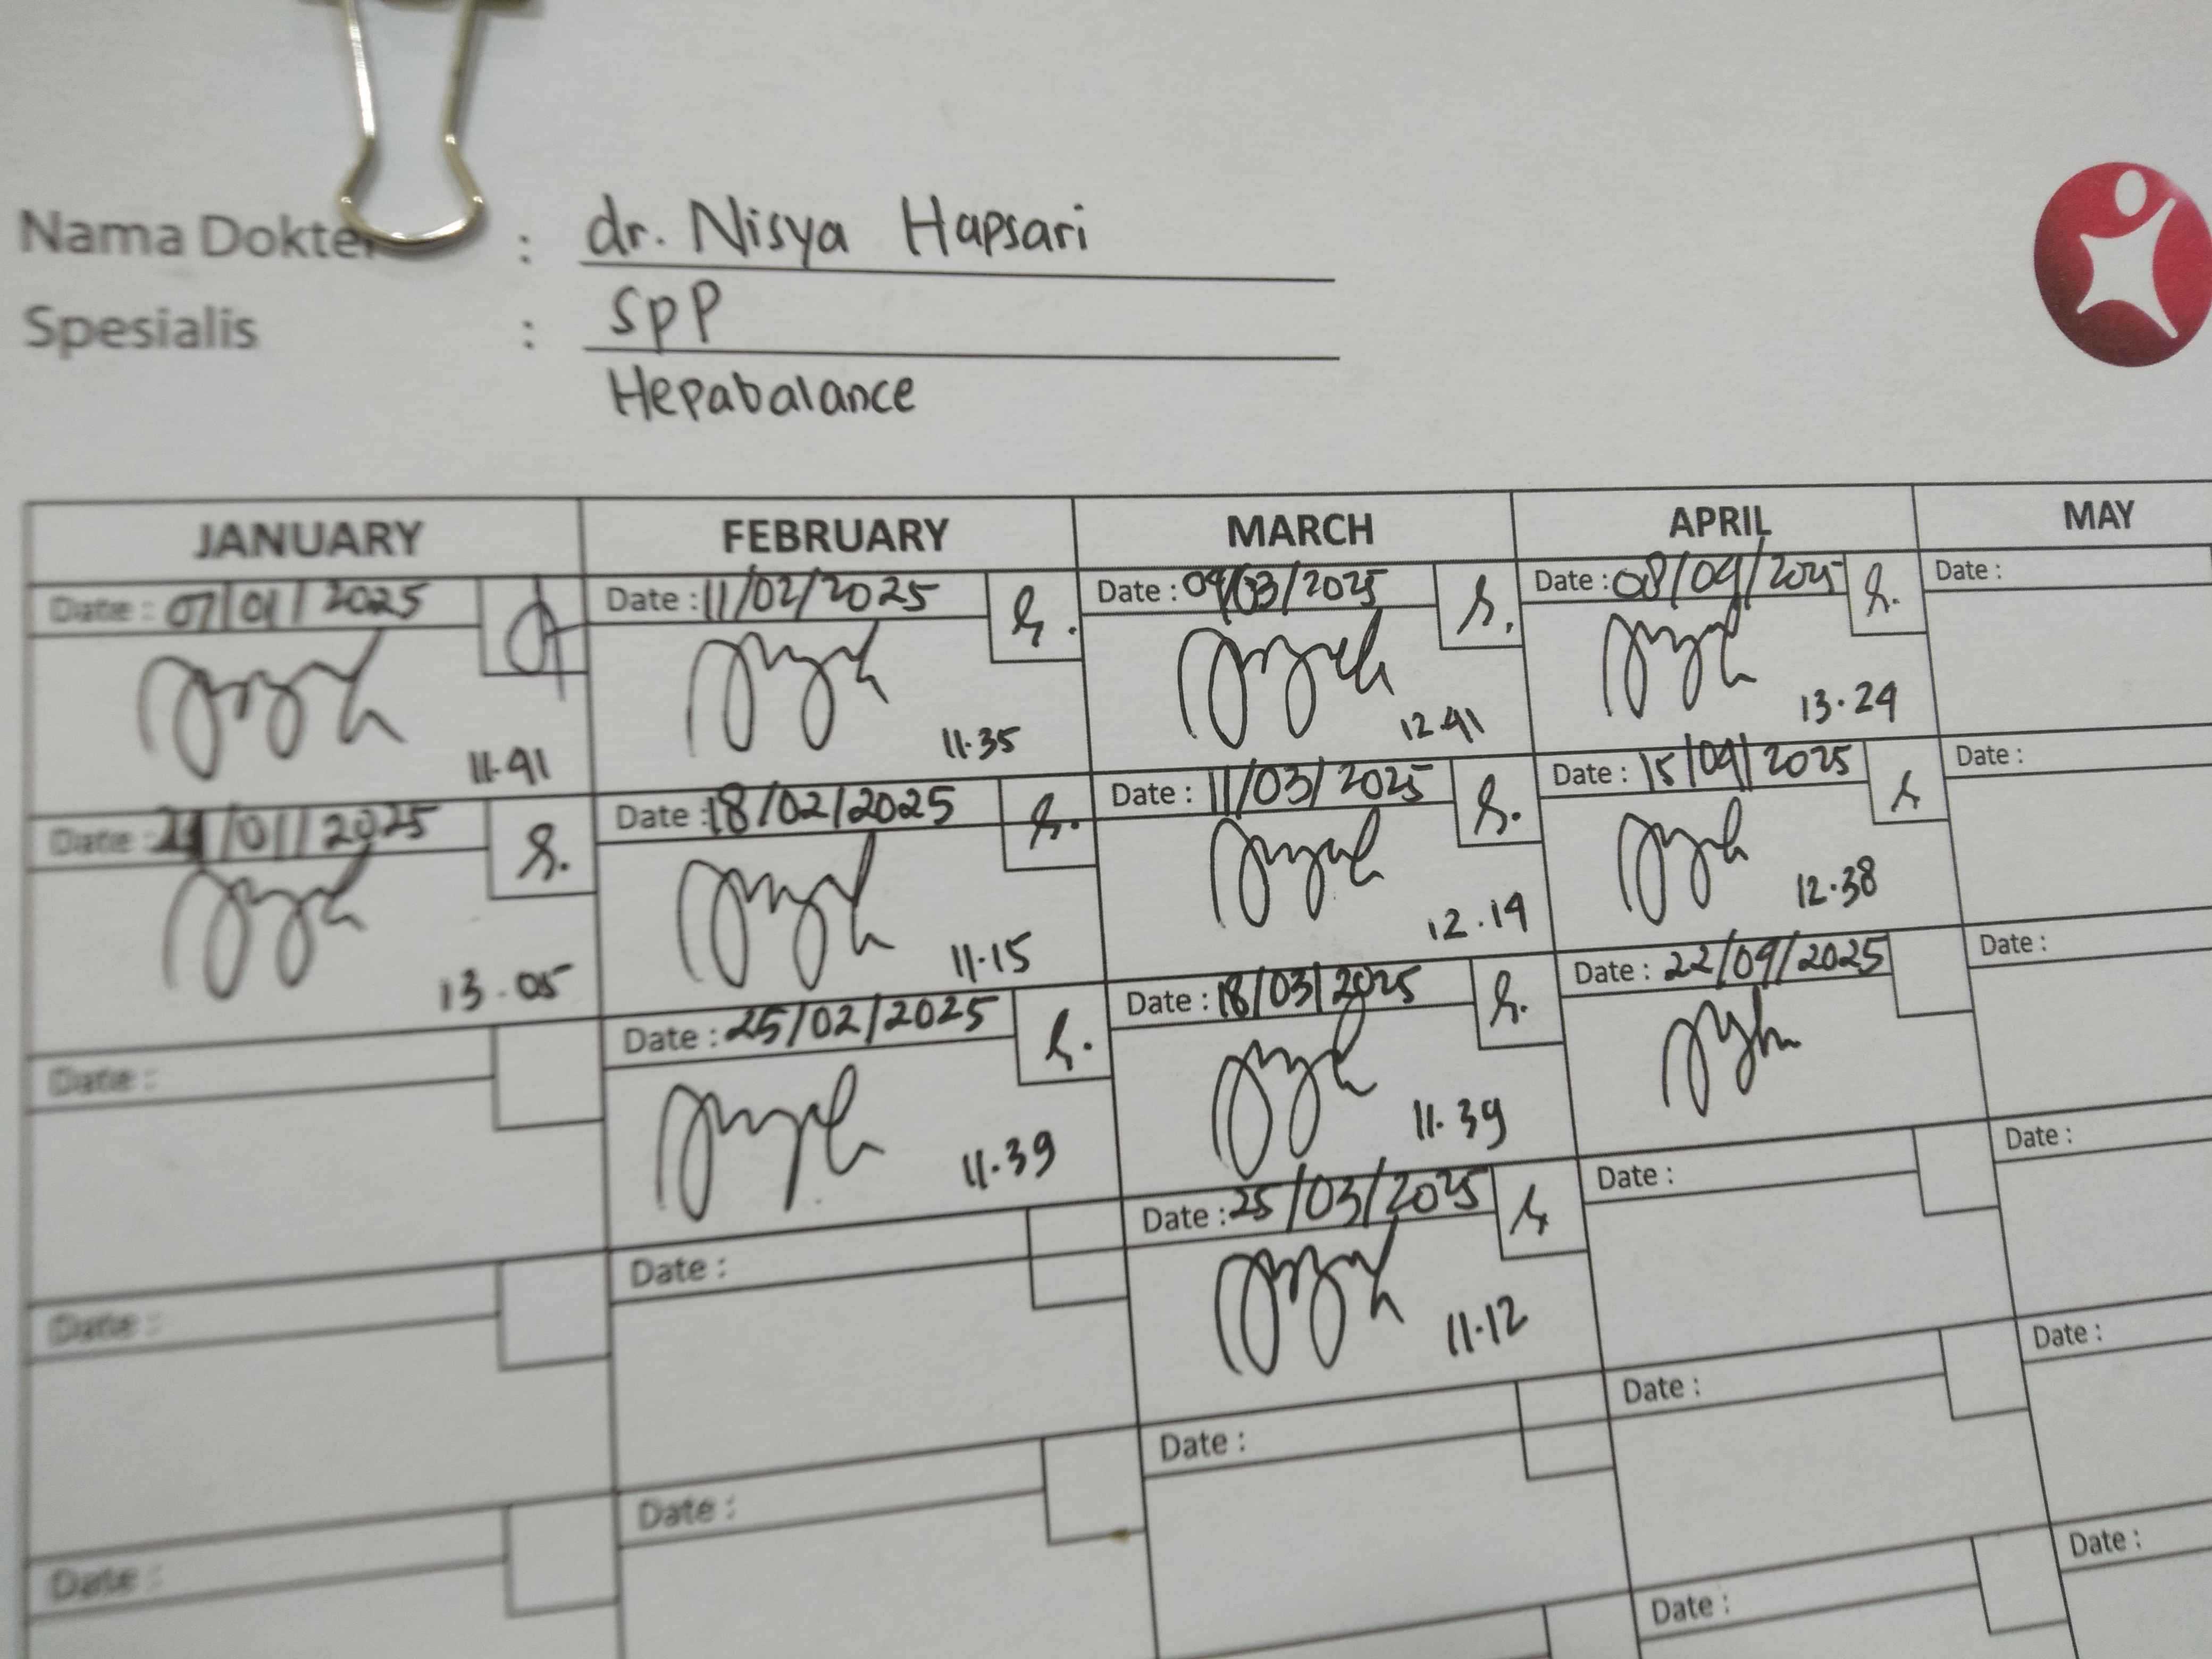 Nama Dokter : dr. Nisya Hapsari
Spesialis : SpP
Hepabalance
JANUARY FEBRUARY MARCH APRIL MAY
Date : 07/01/2025 Date : 11/02/2025 Date : 04/03/2025 Date : 08/04/2025 Date :
11.41 11.35 12.41 13.24
Date : 21/01/2025 Date : 18/02/2025 Date : 11/03/2025 Date : 15/04/2025 Date :
13.05 11.15 12.14 12.38
Date : Date : 25/02/2025 Date : 18/03/2025 Date : 22/04/2025 Date :
11.39 11.39
Date : Date : Date : 25/03/2025 Date : Date :
11.12
Date : Date : Date : Date : Date :
Date : Date :